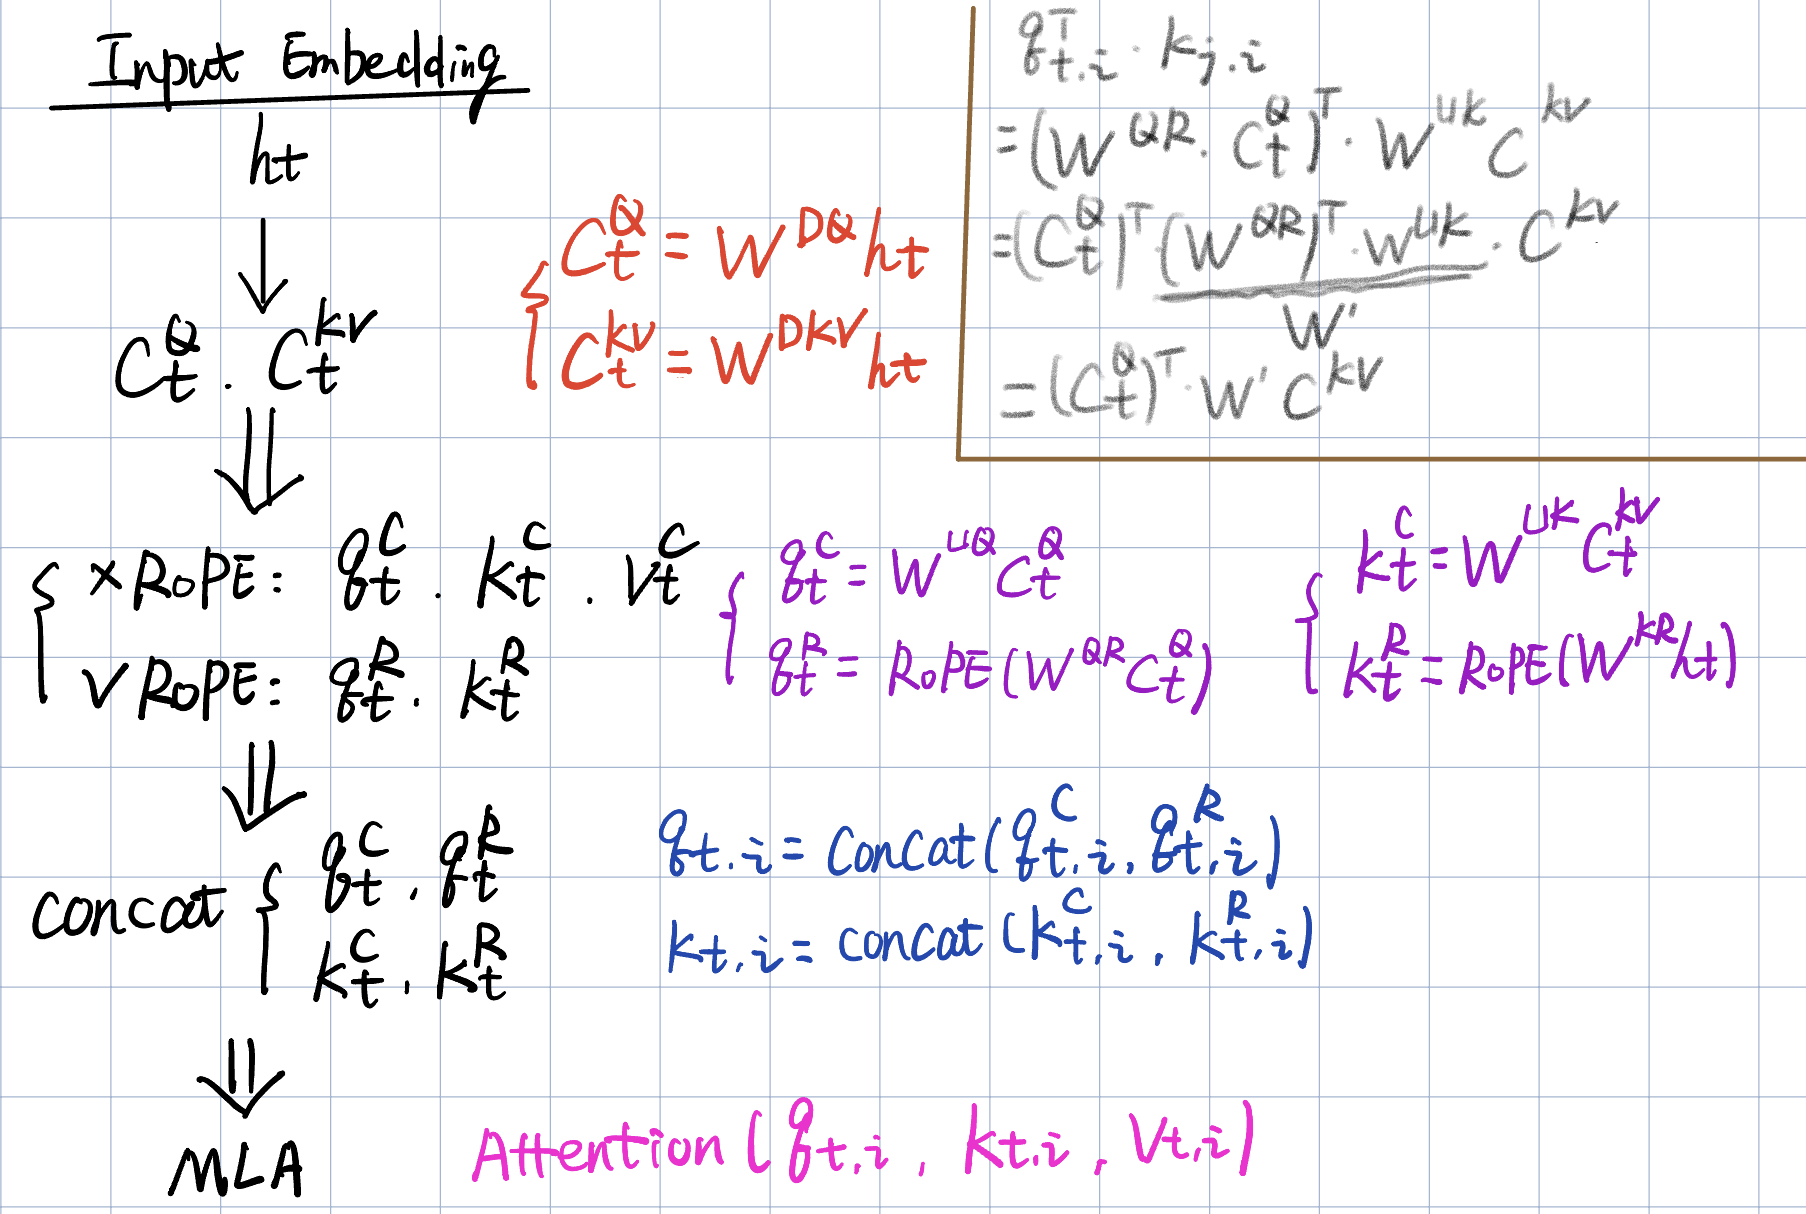 Input Embedding
h_t
C_t^Q . C_t^{KV}
C_t^Q = W^{DQ} h_t
C_t^{KV} = W^{DKV} h_t
q_{t.i}^T . K_{j.i}
= (W^{QR} . C_t^Q)^T . W^{UK} C^{KV}
= (C_t^Q)^T (W^{QR})^T . W^{UK} . C^{KV}
W'
= (C_t^Q)^T . W' C^{KV}
× RoPE: q_t^C . K_t^C . V_t^C
q_t^C = W^{UQ} C_t^Q
K_t^C = W^{UK} C_t^{KV}
√ RoPE: q_t^R . K_t^R
q_t^R = RoPE(W^{QR} C_t^Q)
K_t^R = RoPE(W^{KR} h_t)
concat
q_t^C . q_t^R
K_t^C . K_t^R
q_{t.i} = Concat(q_{t,i}^C, q_{t,i}^R)
K_{t,i} = concat(K_{t,i}^C, K_{t,i}^R)
MLA
Attention (q_{t,i}, K_{t,i}, V_{t,i})